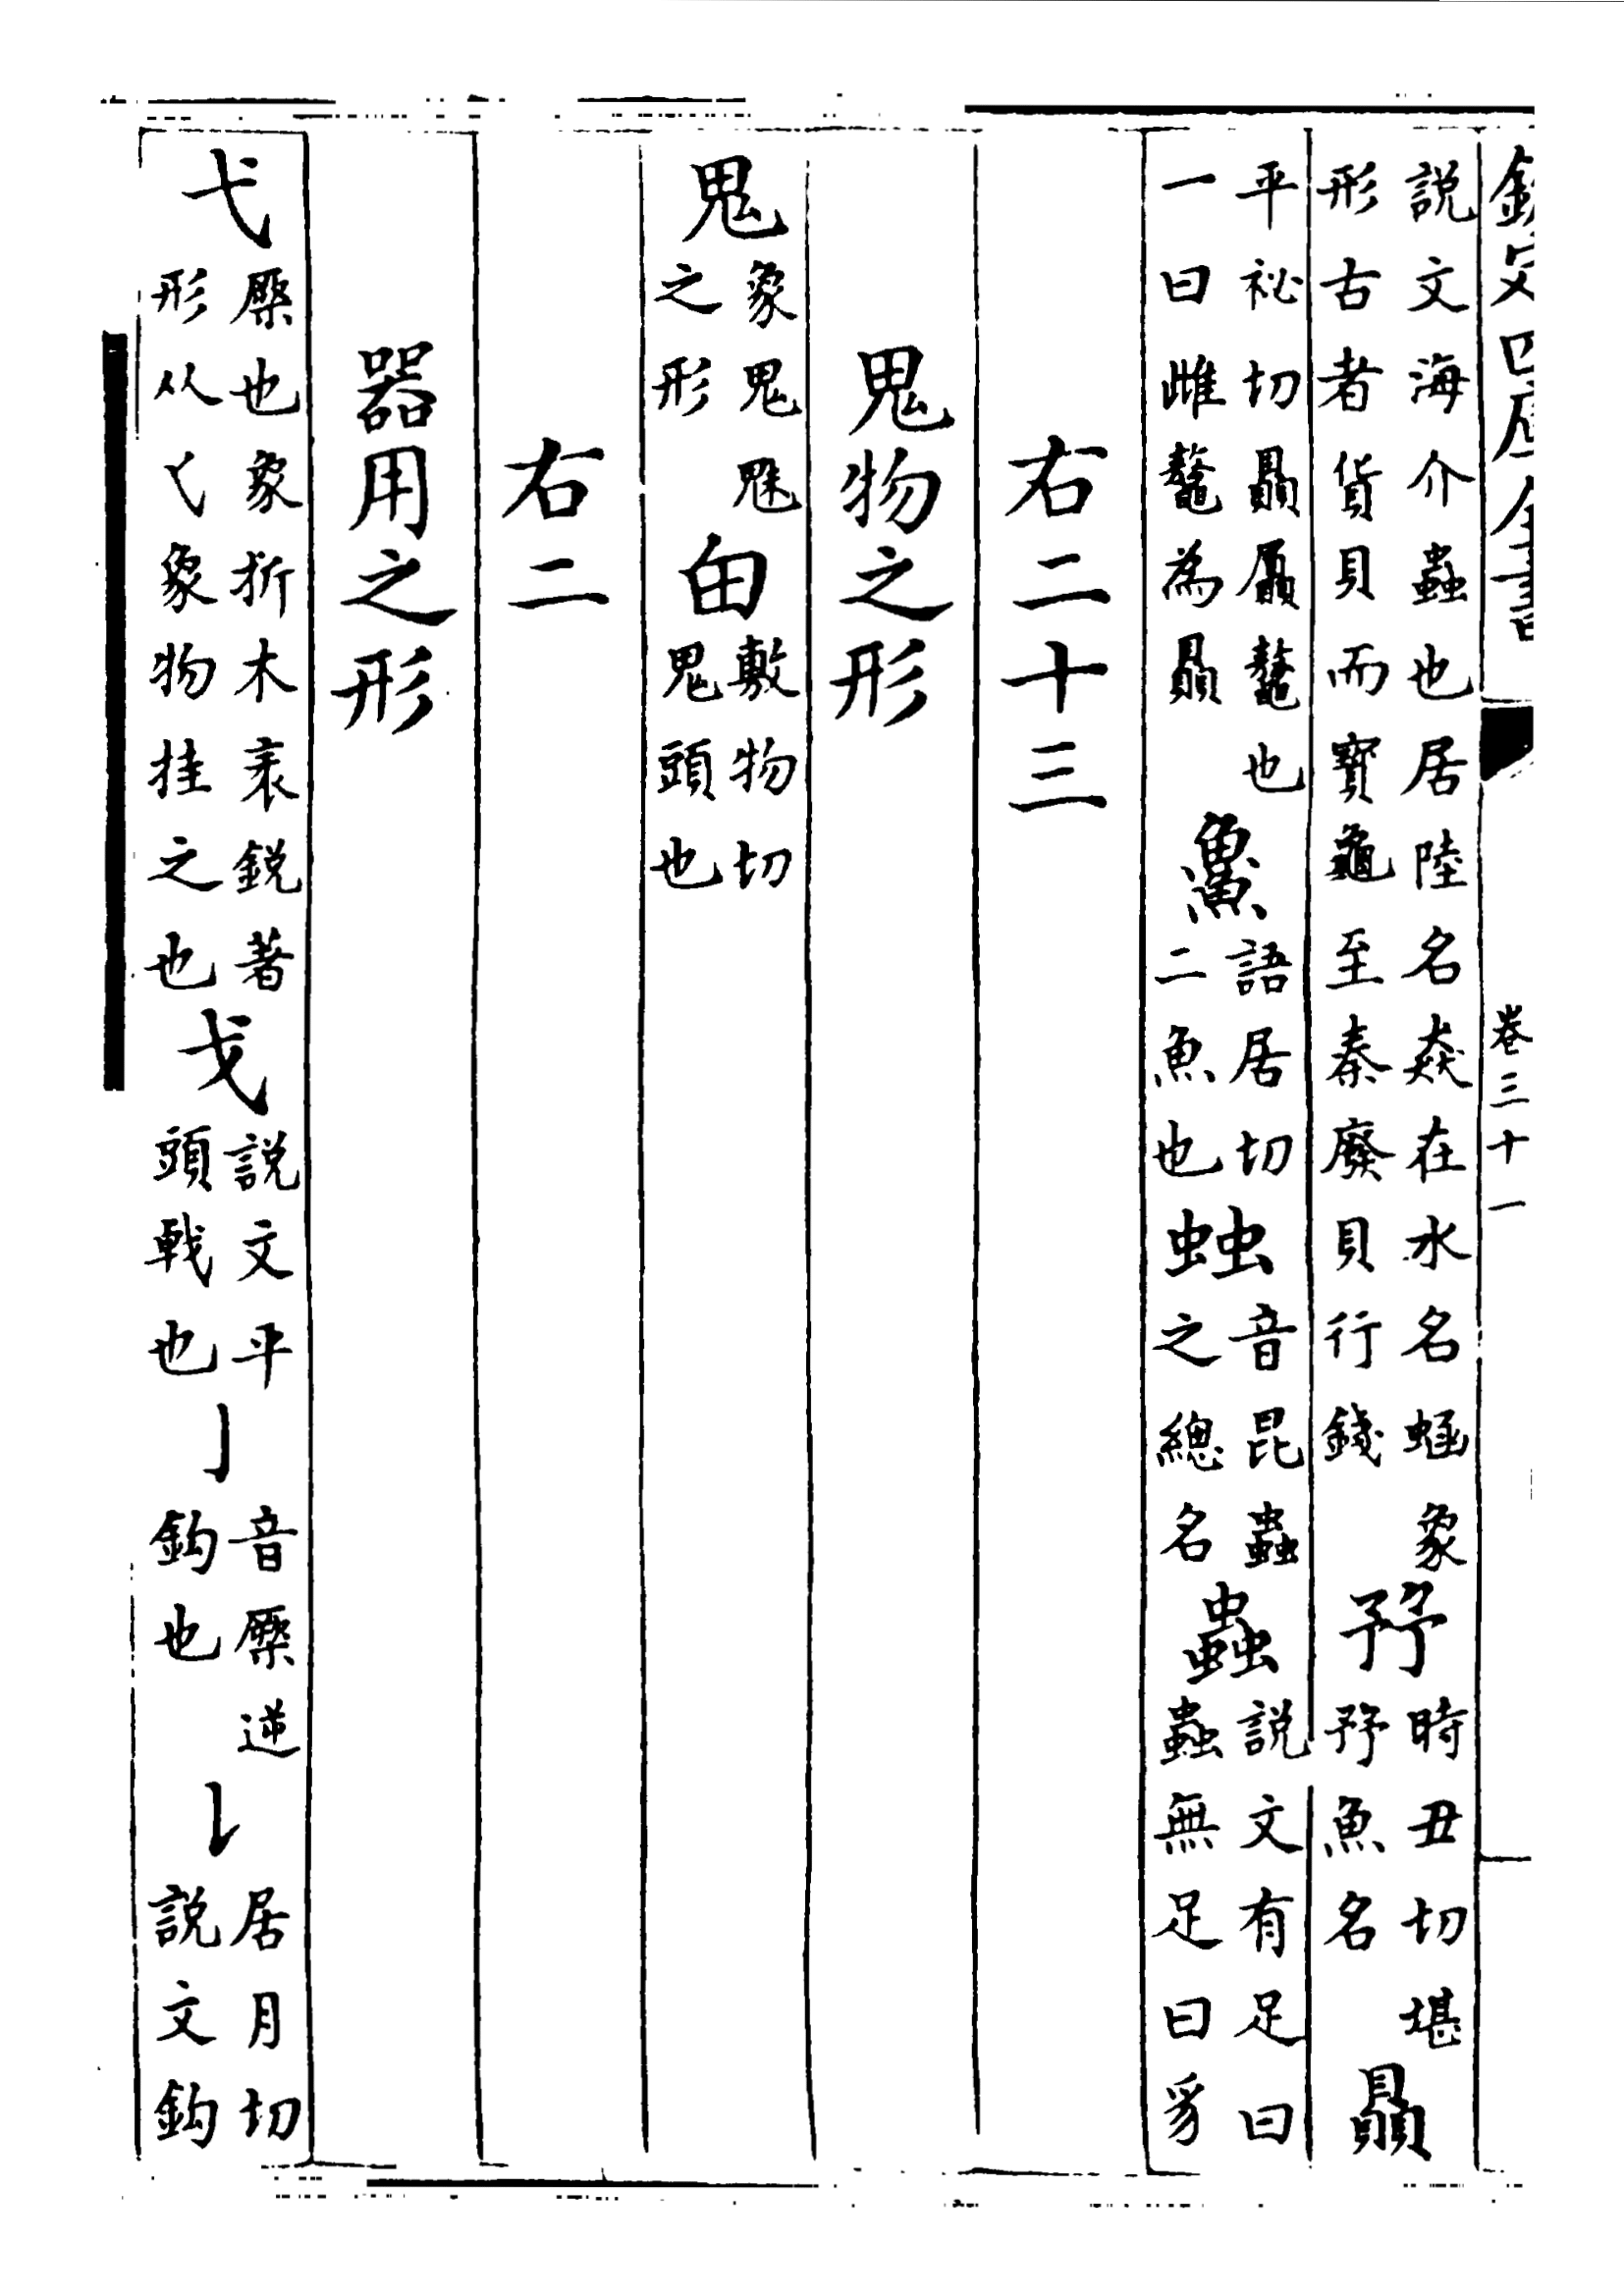 欽定四庫全書 卷三十一
説文海介蟲也居陸名猋在水名蜬象
形古者貨貝而寳龜至秦廢貝行錢
時丑切堪
魚名
贔
平祕切贔屭鼇也
一曰雌鼇為贔
䲆
語居切
二魚也
䖵
音昆蟲
之總名
蟲
説文有足曰
蟲無足曰豸
右二十三
鬼物之形
鬼
象鬼魅
之形
甶
敷物切
鬼頭也
右二
器用之形
弋
橜也象折木衺鋭著
形从乀象物挂之也
戈
説文平
頭戟也
亅
音橜逆
鈎也
𠄌
居月切
説文鈎